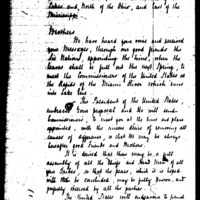 Lakes, and North of the Ohio, and East of the
Mississippi
Brothers
We have heard your voice and received
your Messages, through our good friends the
Six Nations, appointing the time, when the
leaves shall be full out the next Spring, to
meet the Commissioners of the United States at
the Rapids of the Miami River which runs
into Lake Erie.
The President of the United States
embraces your proposal and he will send
Commissioners, to meet you at the time and place
appointed, with the sincere desire of removing all
causes of difference, so that we may be always
hereafter good friends and Brothers.
It is desired that there may be a full
assembly of all the Chiefs and Head Men of all
your Tribes, so that the peace, which it is hoped
will then be concluded, may be fully known, and
properly observed by all the parties.
The United States will endeavour to